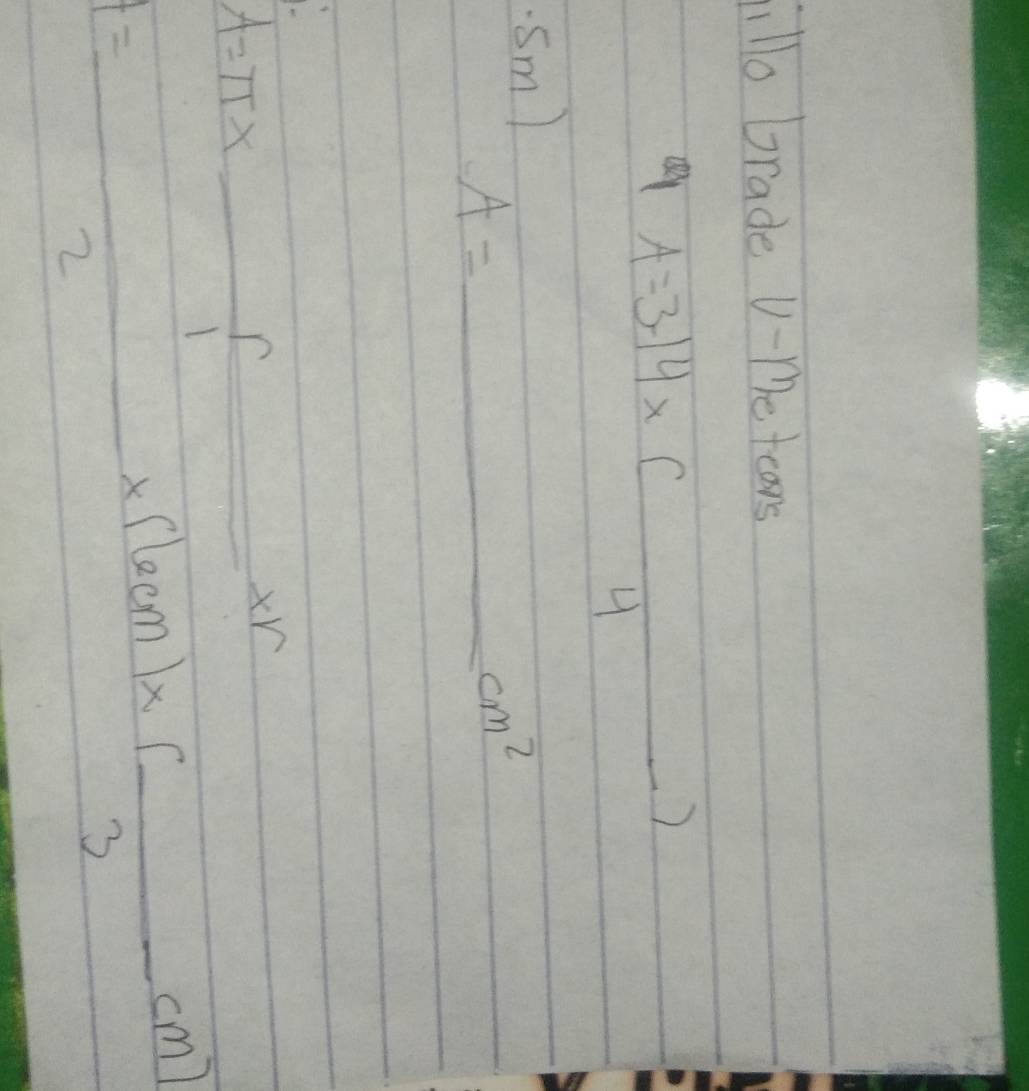 illo Grade V-Meteors
A=3.14 x (________)
4
.5m)
A = ________ cm²
A=π x ____ r ____ xr
1
A = ________ x (16cm) x (________ cm)
2 3